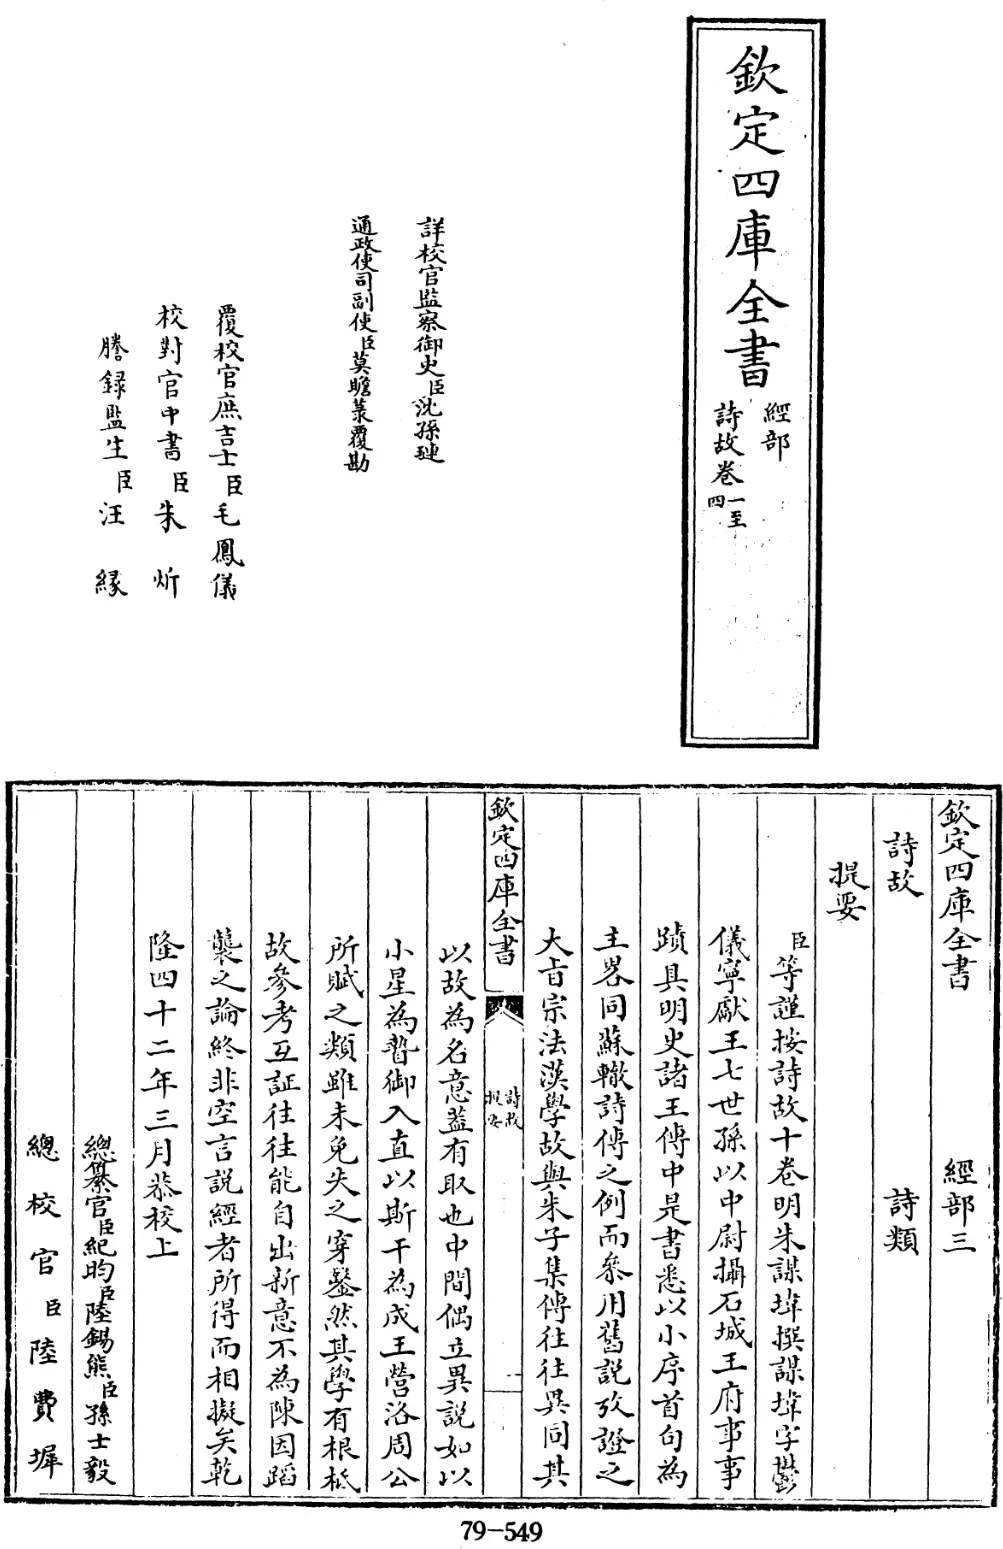 欽定四庫全書
經部
詩故卷一至四
詳校官監察御史臣沈孫璉
通政使司副使臣莫瞻菉覆勘
覆校官庶吉士臣毛鳳儀
校對官中書臣朱炘
謄録監生臣汪縁
欽定四庫全書 經部三
詩故 詩類
提要
臣等謹按詩故十卷明朱謀㙔撰謀㙔字鬱
儀寧獻王七世孫以中尉攝石城王府事事
蹟具明史諸王傳中是書悉以小序首句為
主畧同蘇轍詩傳之例而參用舊説攷證之
大旨宗法漢學故與朱子集傳往往異同其
欽定四庫全書
詩故
提要
以故為名意蓋有取也中間偶立異説如以
小星為暬御入直以斯干為成王營洛周公
所賦之類雖未免失之穿鑿然其學有根柢
故參考互証往往能自出新意不為陳因蹈
襲之論終非空言説經者所得而相擬矣乾
隆四十二年三月恭校上
總纂官臣紀昀臣陸錫熊臣孫士毅
總校官臣陸費墀
79-549